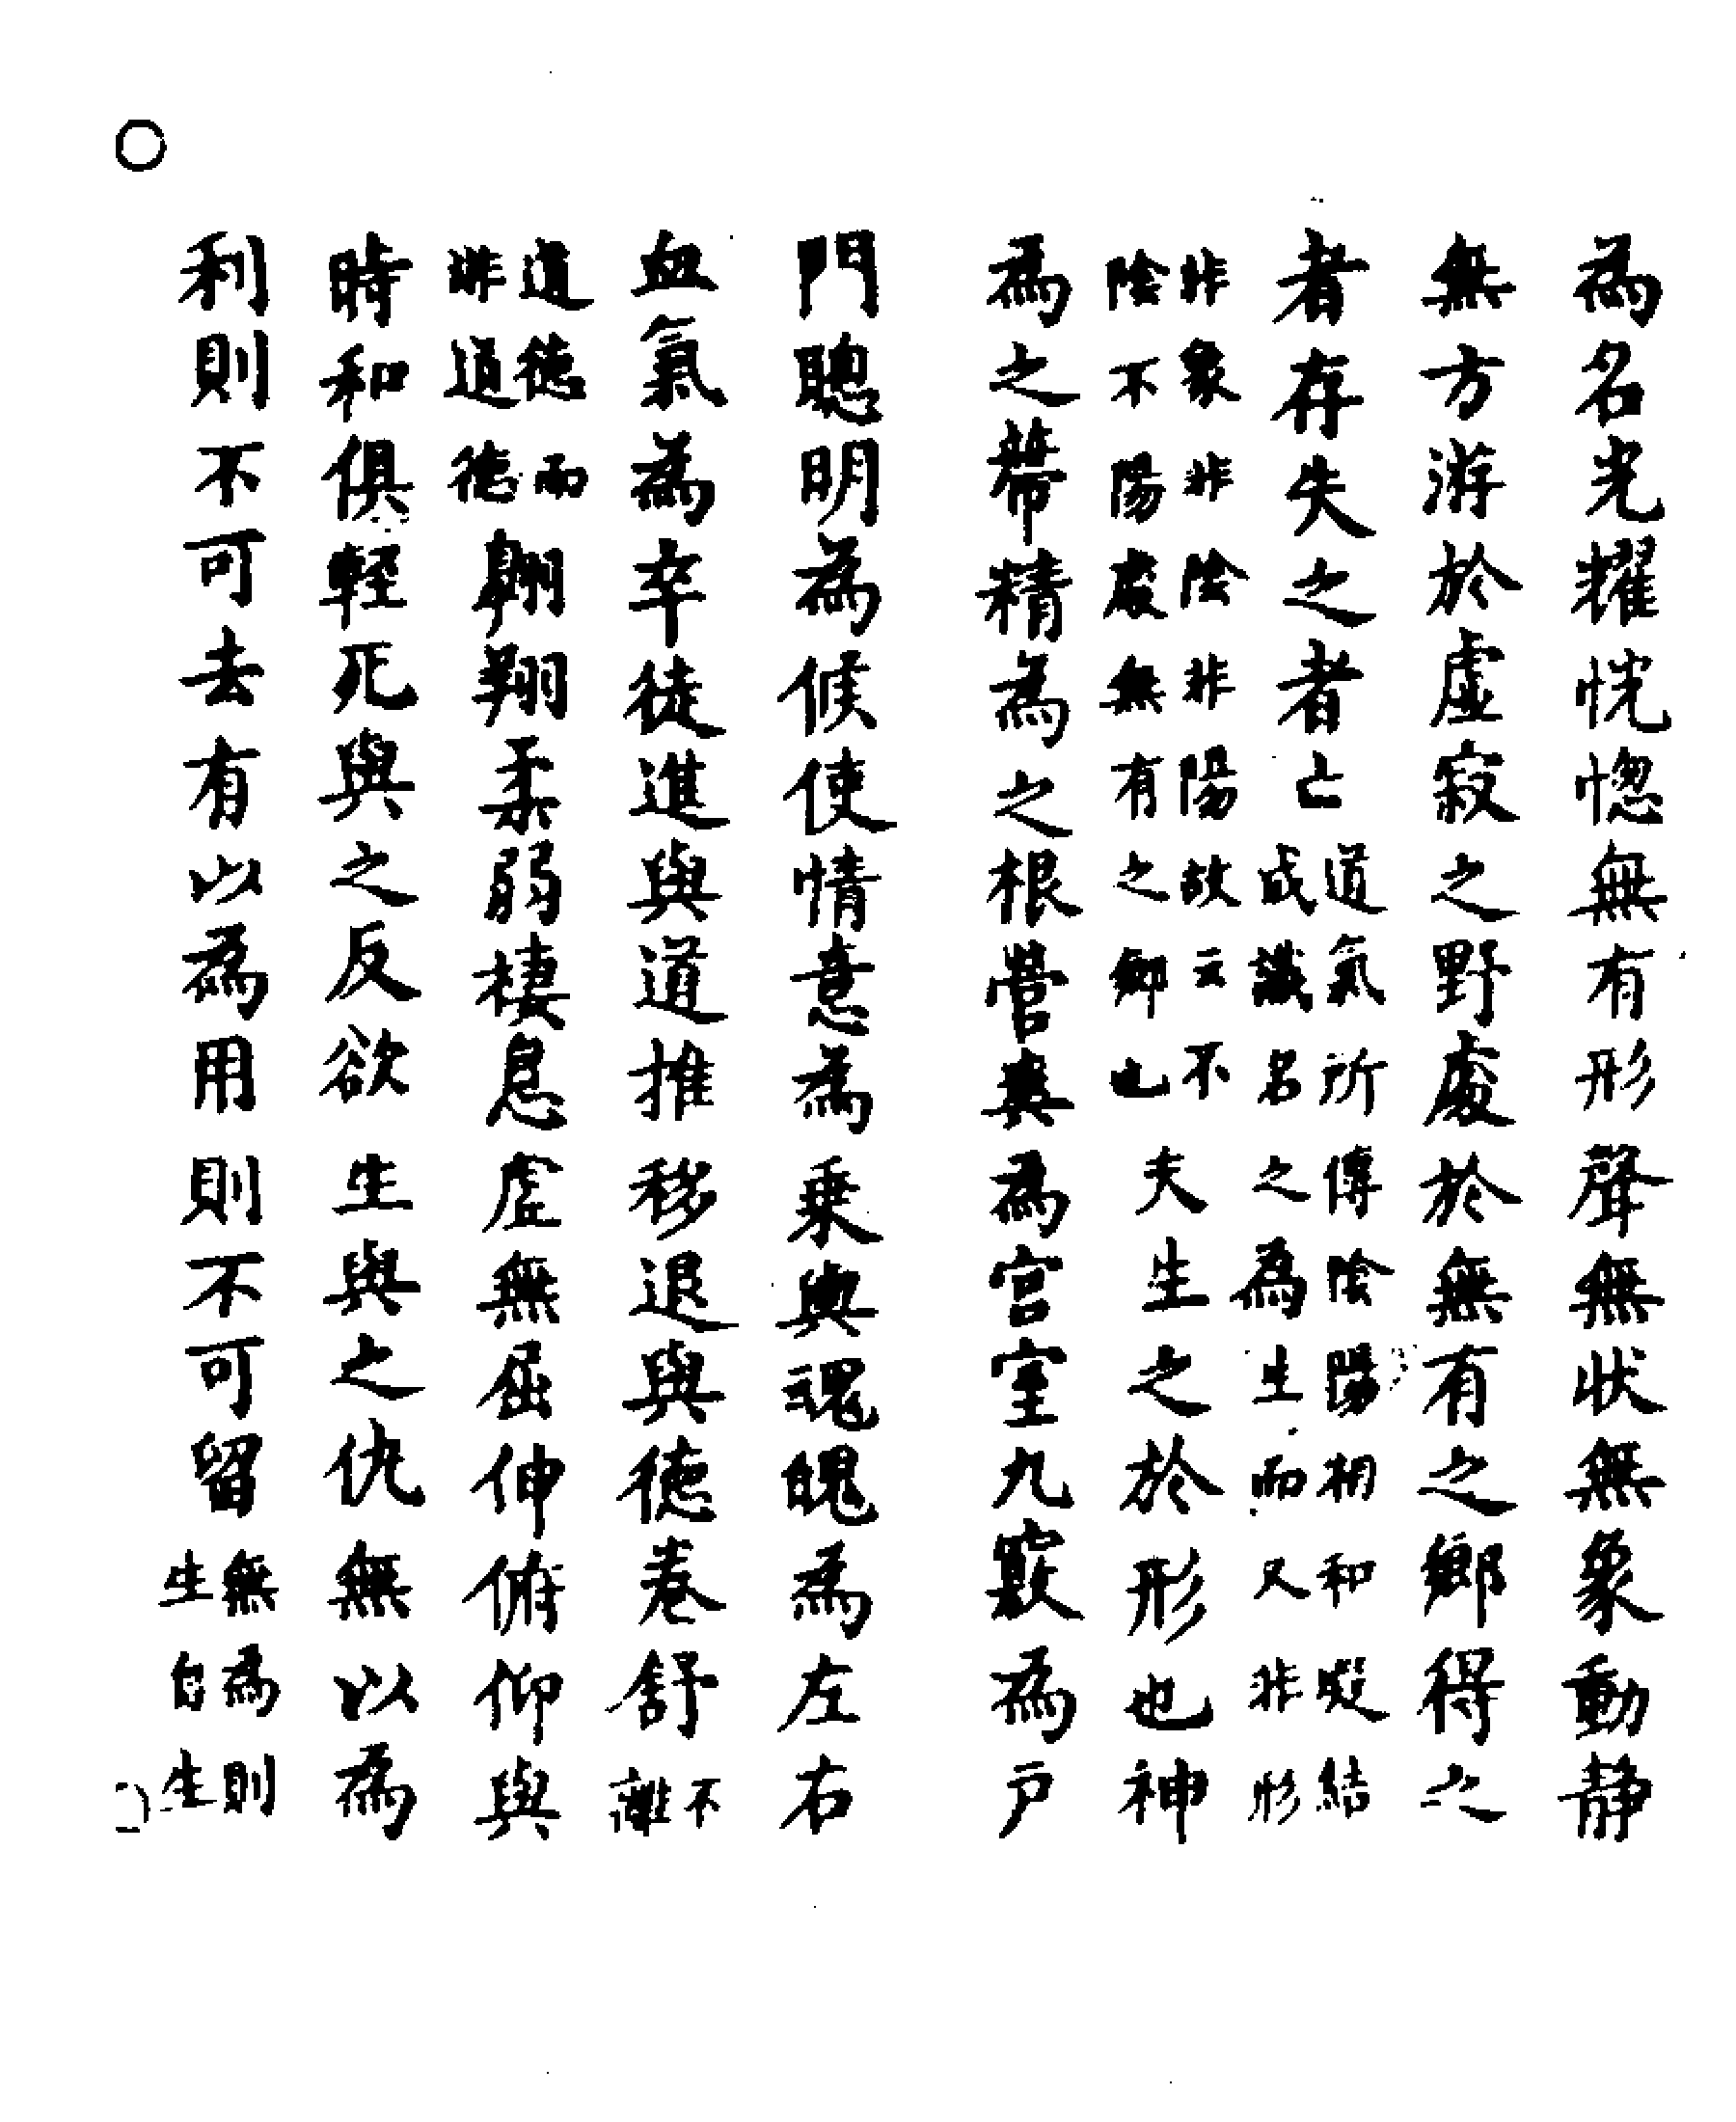 為名光耀恍惚無有形聲無狀無象動静
無方游於虛寂之野處於無有之鄉得之
者存失之者亡道氣所傳陰陽相和凝結
成識名之為生而又非形
非象非陰非陽故云不
陰不陽處無有之鄉也夫生之於形也神
為之蔕精為之根營爽為宮室九竅為戶
門聰明為候使情意為乗輿魂魄為左右
血氣為卒徒進與道推移退與德卷舒不
離
道德而
非道德翺翔柔弱棲息虛無屈伸俯仰與
時和俱輕死與之反欲生與之仇無以為
利則不可去有以為用則不可留無為則
生自生